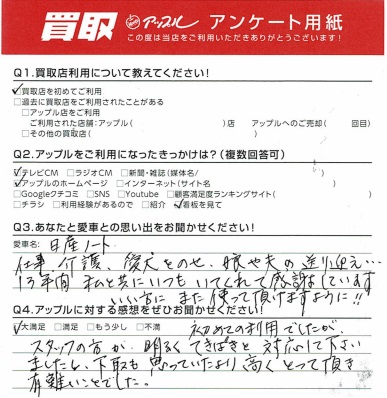 買取 アップル アンケート用紙
この度は当店をご利用いただきありがとうございます!
Q1.買取店利用について教えてください!
☑買取店を初めてご利用
□過去に買取店をご利用されたことがある
□アップル店をご利用
ご利用された店舗:アップル( )店 アップルへのご売却( 回目)
□その他の買取店( )
Q2.アップルをご利用になったきっかけは?(複数回答可)
☑テレビCM □ラジオCM □新聞・雑誌(媒体名/ )
☑アップルのホームページ □インターネット(サイト名 )
□Googleクチコミ □SNS □Youtube □顧客満足度ランキングサイト( )
□チラシ □利用経験があるので □紹介 ☑看板を見て
Q3.あなたと愛車との思い出をお聞かせください!
愛車名: 日産ノート
仕事 介護、愛犬をのせ、娘や夫の送り迎え…
13年間 私と共にいつもいてくれて感謝しています
いい方に また使って頂けますように!!
Q4.アップルに対する感想をぜひお聞かせください!
☑大満足 □満足 □もう少し □不満 初めての利用でしたが、
スタッフの方が 明るく てきぱきと 対応して下さい
ましたし、下取も思っていたより高くとって頂き
有難いことでした。